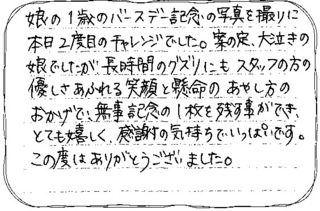 娘の1歳のバースデー記念の写真を撮りに
本日2度目のチャレンジでした。案の定、大泣きの
娘でしたが長時間のグズリにもスタッフの方の
優しさあふれる笑顔と懸命のあやし方の
おかげで、無事記念の1枚を残す事ができ、
とても嬉しく、感謝の気持ちでいっぱいです。
この度はありがとうございました。